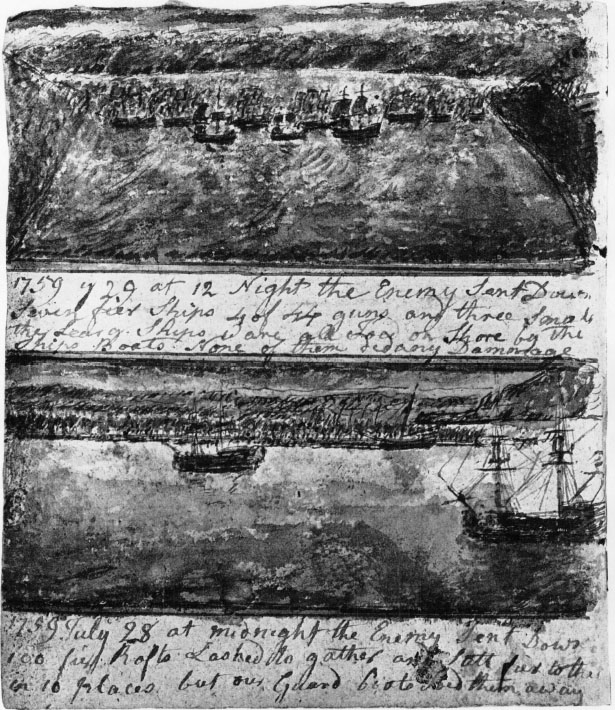 1759 y 29 at 12 Night the Enemy Sent Down
Seven fier Ships 4 of 44 guns and three Small
the Ships ware all on Shore by the
Ships Boats None of them Dammage
1759 July 28 at midnight the Enemy Sent Down
100 fier Rafts Lashed to gather and fier to the
in 10 places but our Guard boats them away